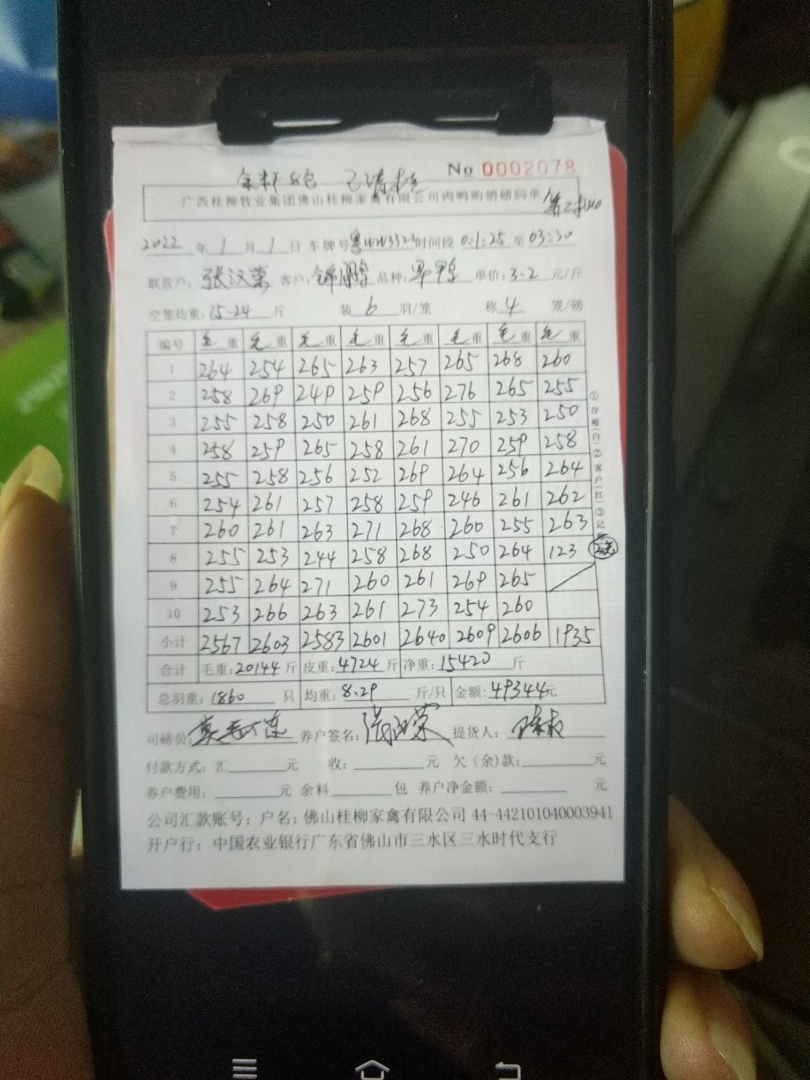 No 0002078
余料 8包 已清
广西桂柳牧业集团佛山桂柳家禽有限公司肉鸭购销磅码单
2022 年 1 月 1 日 车牌号 粤WW3323 时间段 01:25 至 03:30
联营户: 张汉荣 客户: 锦鹏 品种: 单价: 3.2 元/斤
空笼均重: 15.24 斤 装 6 羽/笼 称 4 笼/磅
编号 毛重 毛重 毛重 毛重 毛重 毛重 毛重 毛重
1 264 254 265 263 257 265 268 260
2 258 269 249 259 256 276 265 255
3 255 258 250 261 268 255 253 250
4 258 259 265 258 261 270 259 258
5 255 258 256 252 269 264 256 264
6 254 261 257 258 259 246 261 262
7 260 261 263 271 268 260 255 263
8 255 253 244 258 268 250 264 123
9 255 264 271 260 261 269 265
10 253 266 263 261 273 254 260
小计 2567 2603 2583 2601 2640 2609 2606 1935
合计 毛重: 20144 斤 皮重: 4724 斤 净重: 15420 斤
总羽重: 1860 只 均重: 8.29 斤/只 金额: 49344元
司磅员: 养户签名: 张汉荣 提货人:
付款方式: 汇 元 收: 元 欠(余)款: 元
养户费用: 元 余料 包 养户净金额: 元
公司汇款账号: 户名: 佛山桂柳家禽有限公司 44-442101040003941
开户行: 中国农业银行广东省佛山市三水区三水时代支行
①存根(白)②客户(红)③记